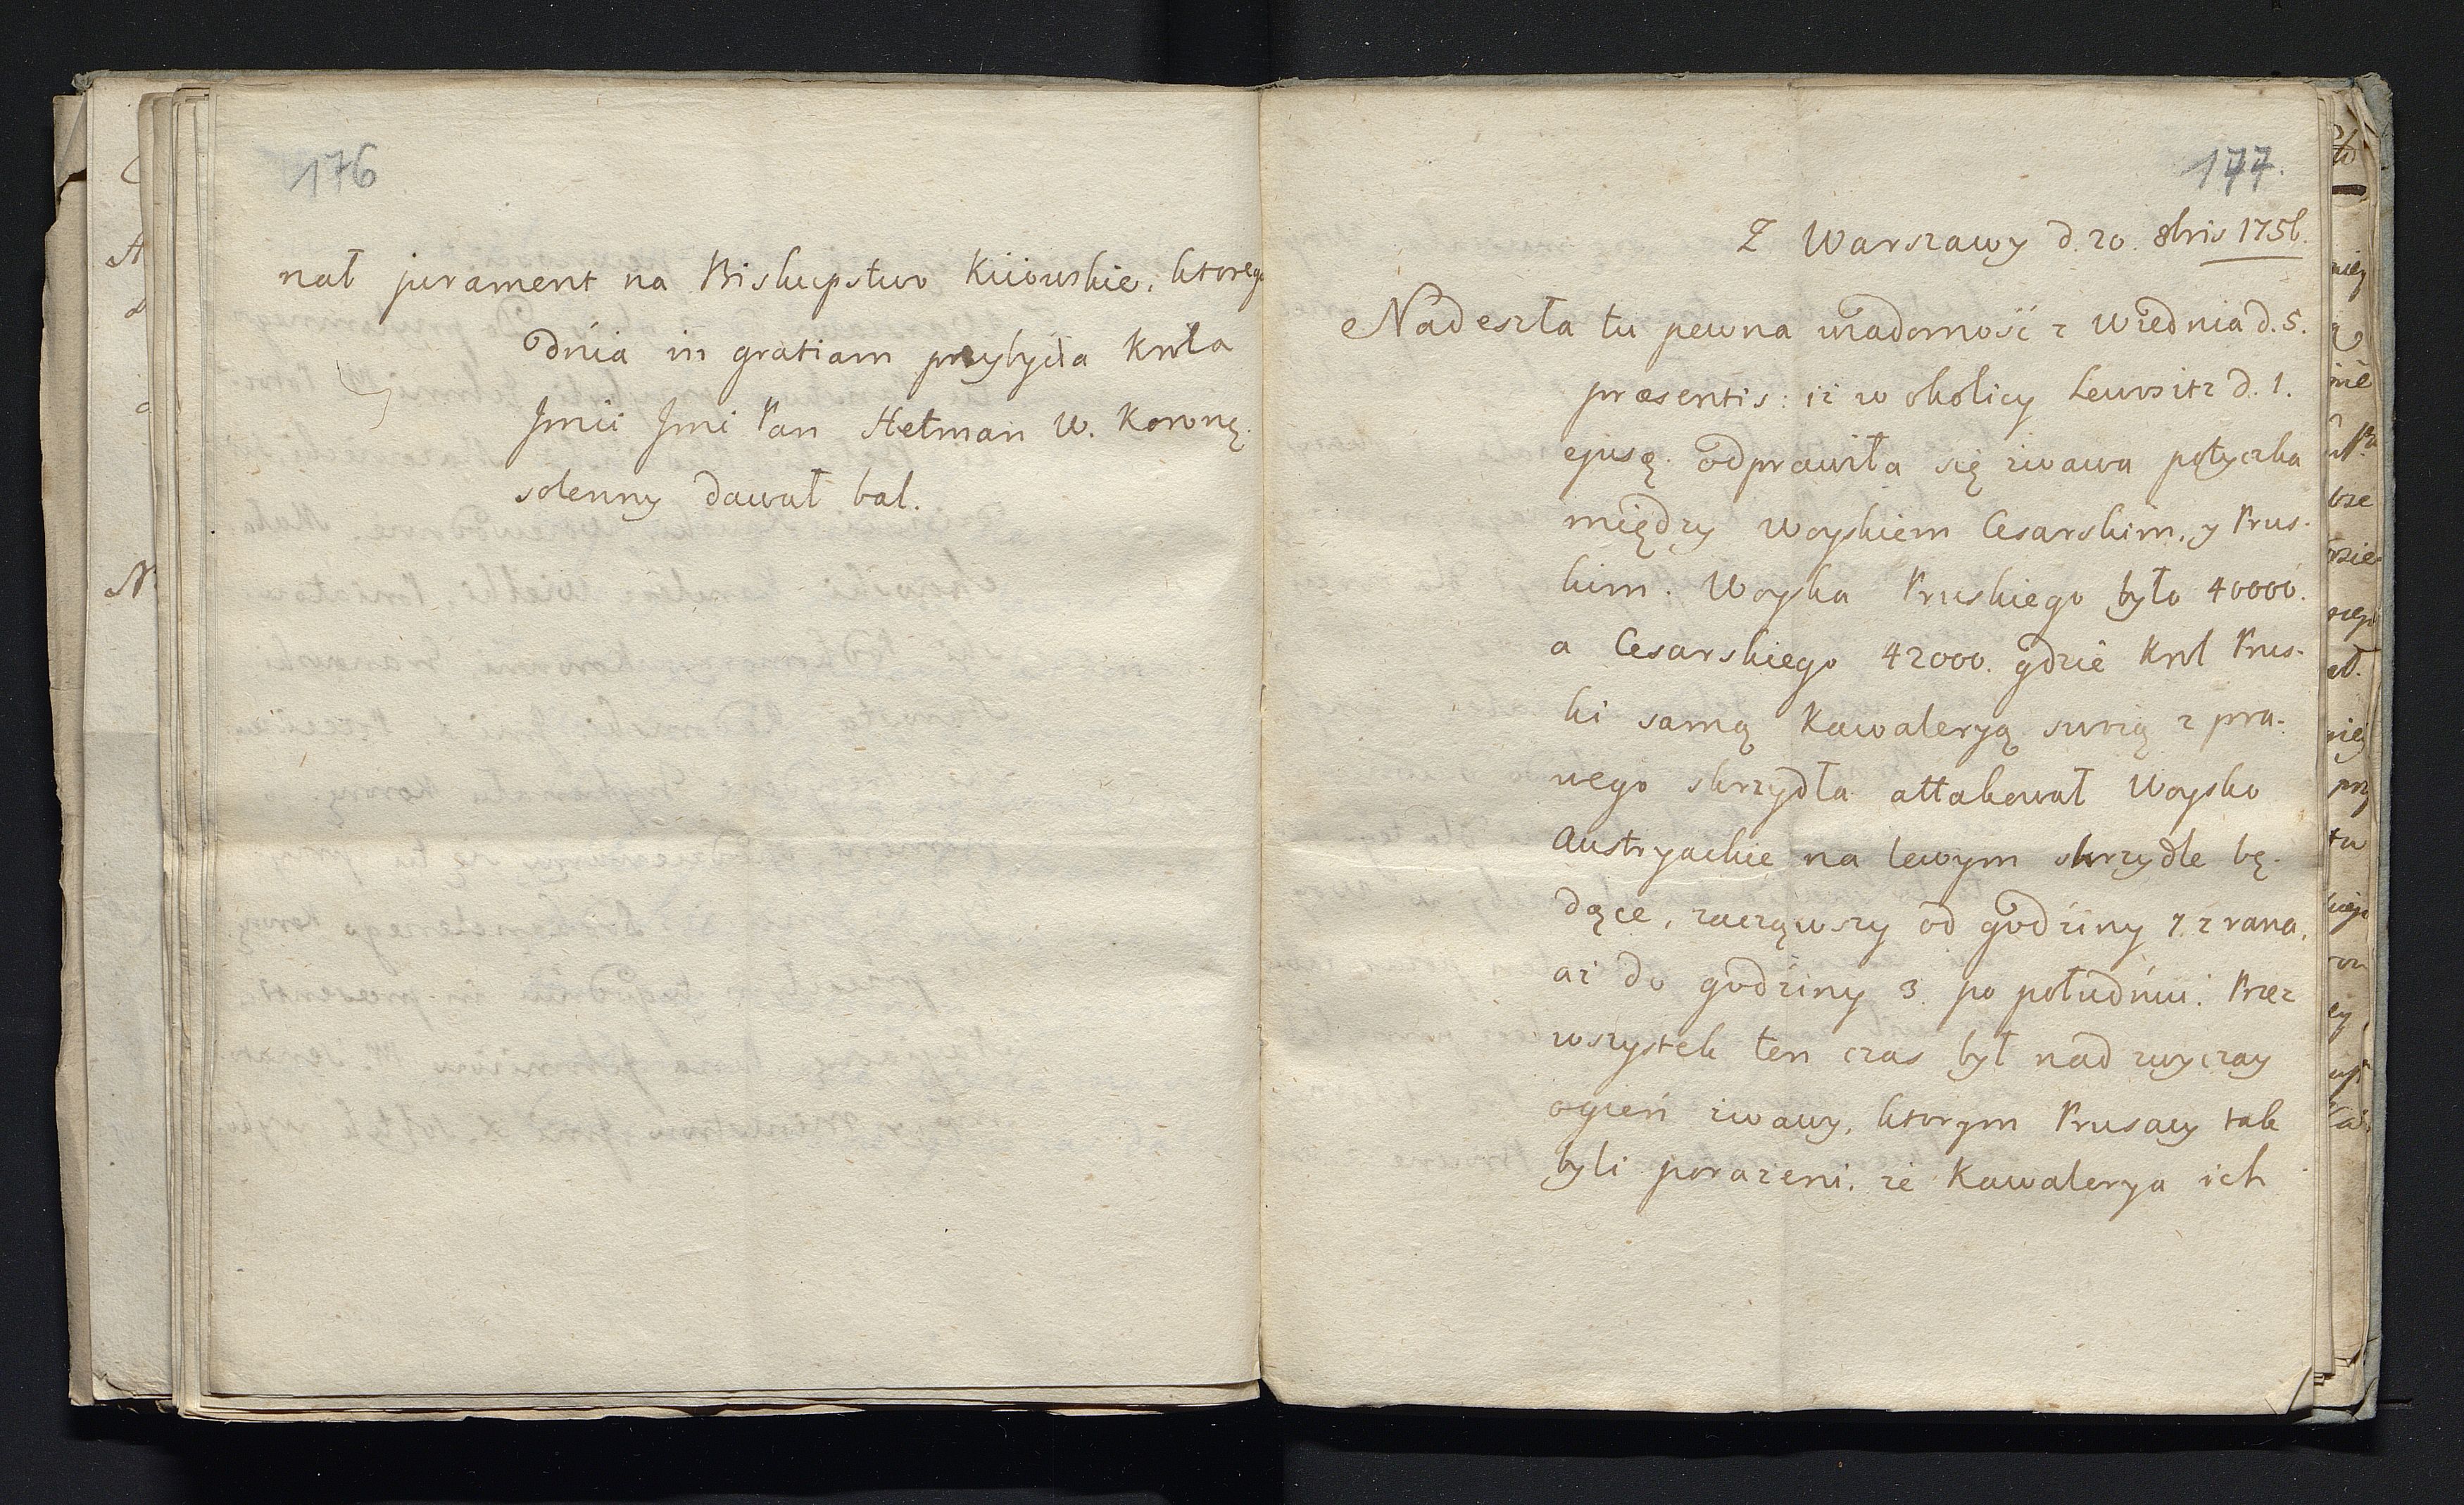 176
nał jurament na Biskupstwo Kiiowskie, ktorego
dnia in gratiam przybycia Krola
Jmći Jmć Pan Hetman W. Koronę.
solenny dawał bal.
177.
Z Warszawy d. 20. 8bris 1756.
Nadeszła tu pewna wiadomość z Wiednia d. 5.
praesentis: iż w okolicy Lewositz d. 1.
ejusę. odprawiła się żwawa potyczka
między Woyskiem Cesarskim, y Prus-
kim. Woyska Pruskiego było 40000.
a Cesarskiego 42000. gdzie Krol Prus-
ki samą Kawaleryą swoią z pra-
wego skrzydła attakował Woysko
Austryackie na lewym skrzydle bę-
dące, zacząwszy od godziny 7. z rana,
aż do godziny 3. po południu. Przez
wszystek ten czas był nad zwyczay
ogień żwawy, ktorym Prusacy tak
byli porażeni, że Kawalerya ich